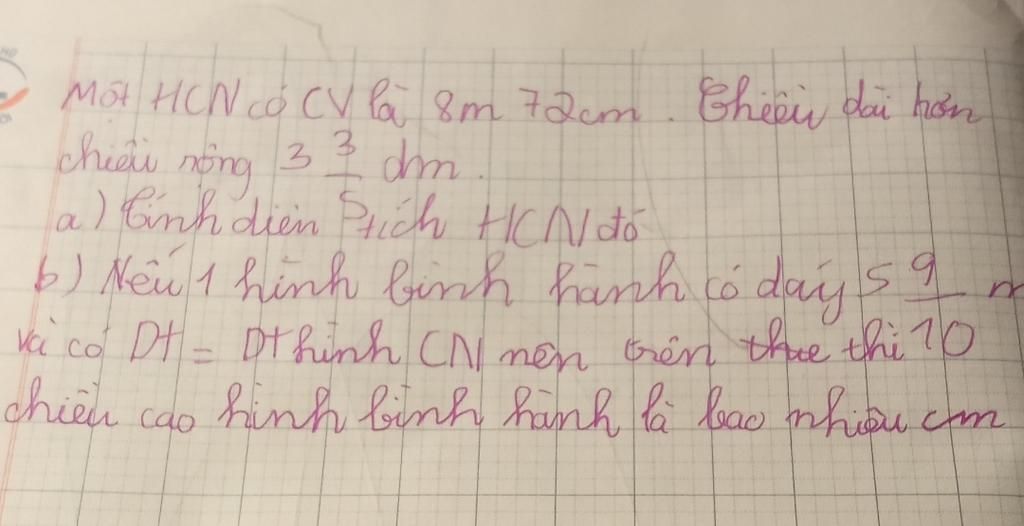 Một HCN có CV là 8m 72cm. Chiều dài hơn
chiều rộng 3 3/5 dm.
a) Tính diện tích HCN đó
b) Nếu 1 hình bình hành có đáy 5 9/10 m
và có Dt = Dt hình CN nên trên thì
chiều cao hình bình hành là bao nhiêu cm